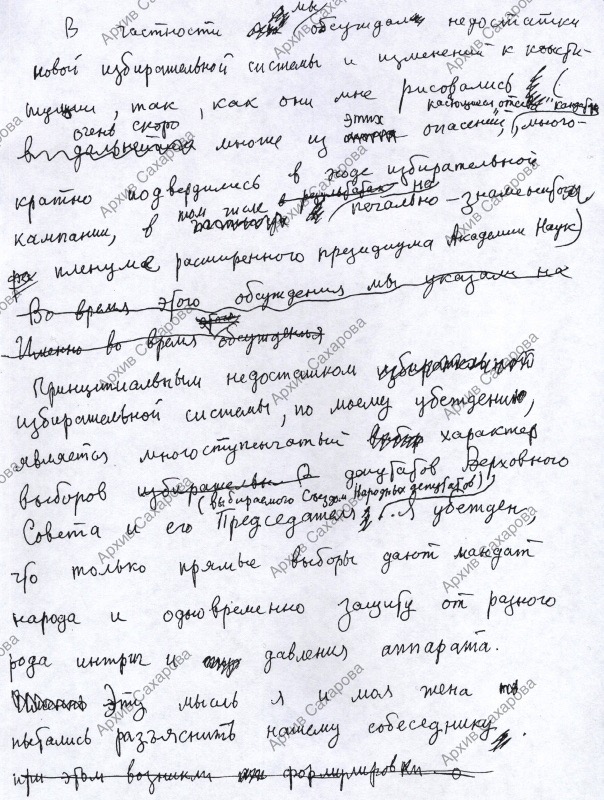 В частности мы обсуждали недостатки
новой избирательной системы и изменений к консти-
туции, так, как они мне рисовались (
касающиеся отсева "кандид
очень скоро этих
в дальнейшем многие из опасений, много-
кратно подтвердились в ходе избирательной
кампании, в том числе в результатах на печально-знаменитом
пленуме расширенного президиума Академии Наук)
Во время этого обсуждения мы указали на
Именно во время этого обсужденья
Принципиальным недостатком избирательной
избирательной системы, по моему убеждению,
является многоступенчатый характер
выборов депутатов Верховного
(выбираемого Съездом Народных депутатов)
Совета и его Председателя. Я убежден,
что только прямые выборы дают мандат
народа и одновременно защиту от разного
рода интриг и давления аппарата.
Эту мысль я и моя жена
пытались разъяснить нашему собеседнику.
при этом возникли формулировки о
Архив Сахарова